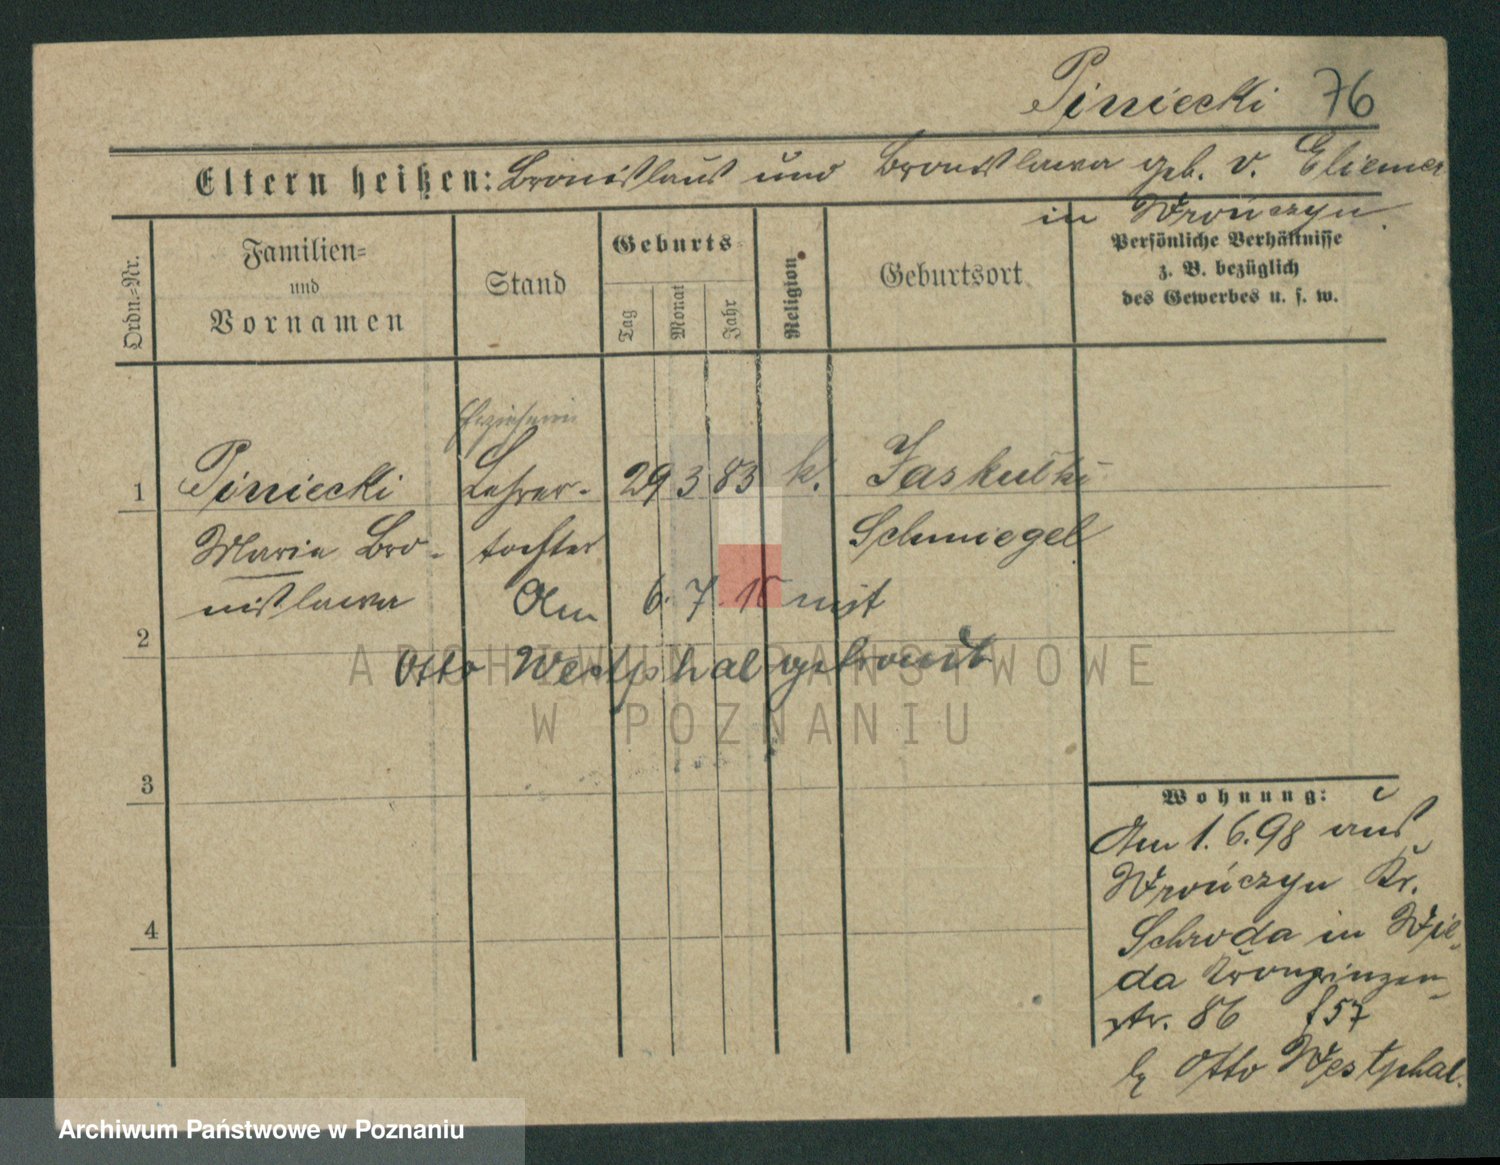 Piniecki 76
Eltern heißen: Bronislaus und Bronislawa geb. v.
in Wrończyn
Ordn.-Nr.
Familien-
und
Vornamen
Stand
Geburts
Tag
Monat
Jahr
Religion
Geburtsort
Persönliche Verhältnisse
z. B. bezüglich
des Gewerbes u. s. w.
Erzieherin
1 Piniecki Lehrer- 29 3 83 k. Jaskulki
Marie Bro- tochter Schmiegel
nislawa Am 6. 7. mit
2
Otto Westphal getraut
3
4
Wohnung:
Am 1. 6. 98 aus
Wrończyn Kr.
Schroda in Wil-
da Kronprinzen-
str. 86 f 57
Otto Westphal.
ARCHIWUM PAŃSTWOWE
W POZNANIU
Archiwum Państwowe w Poznaniu